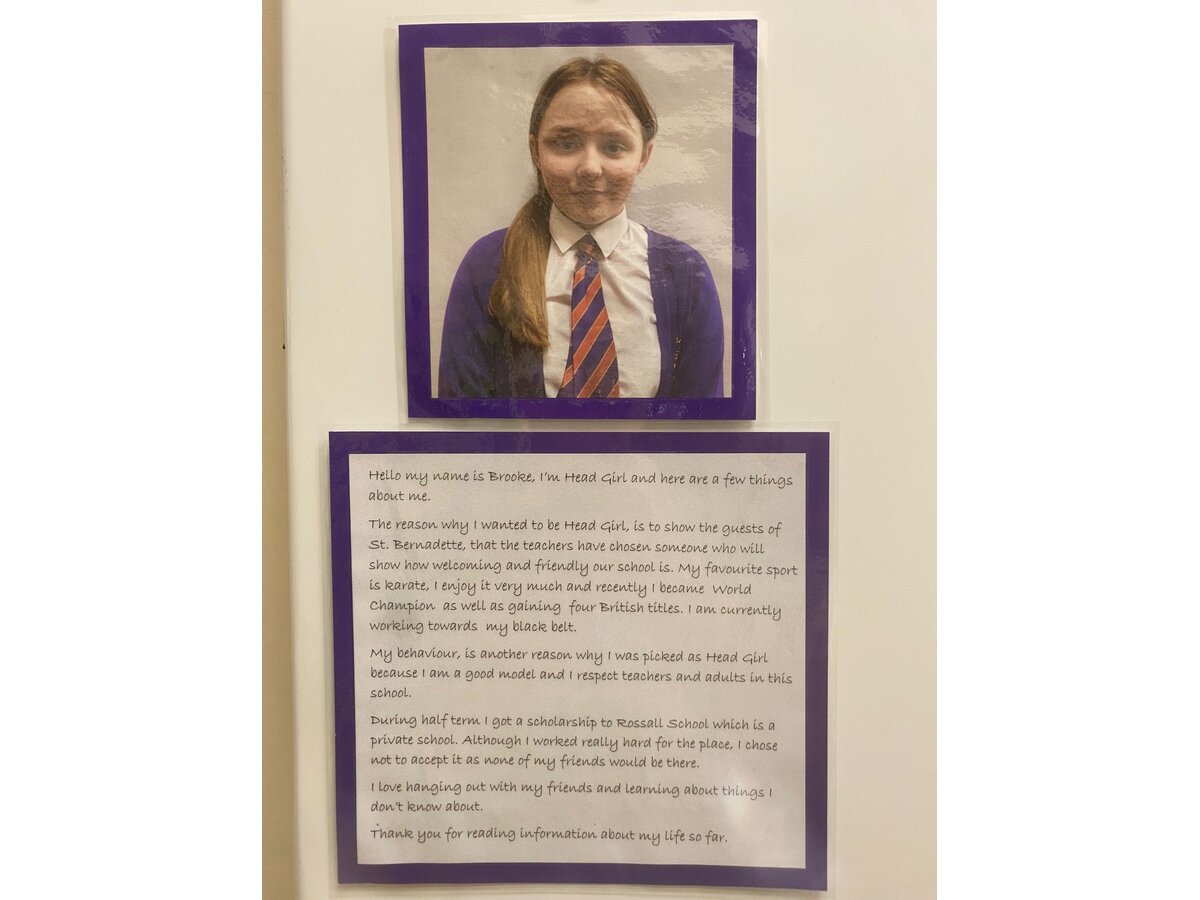 Hello my name is Brooke, I'm Head Girl and here are a few things
about me.
The reason why I wanted to be Head Girl, is to show the guests of
St. Bernadette, that the teachers have chosen someone who will
show how welcoming and friendly our school is. My favourite sport
is karate, I enjoy it very much and recently I became World
Champion as well as gaining four British titles. I am currently
working towards my black belt.
My behaviour, is another reason why I was picked as Head Girl
because I am a good model and I respect teachers and adults in this
school.
During half term I got a scholarship to Rossall School which is a
private school. Although I worked really hard for the place, I chose
not to accept it as none of my friends would be there.
I love hanging out with my friends and learning about things I
don't know about.
Thank you for reading information about my life so far.